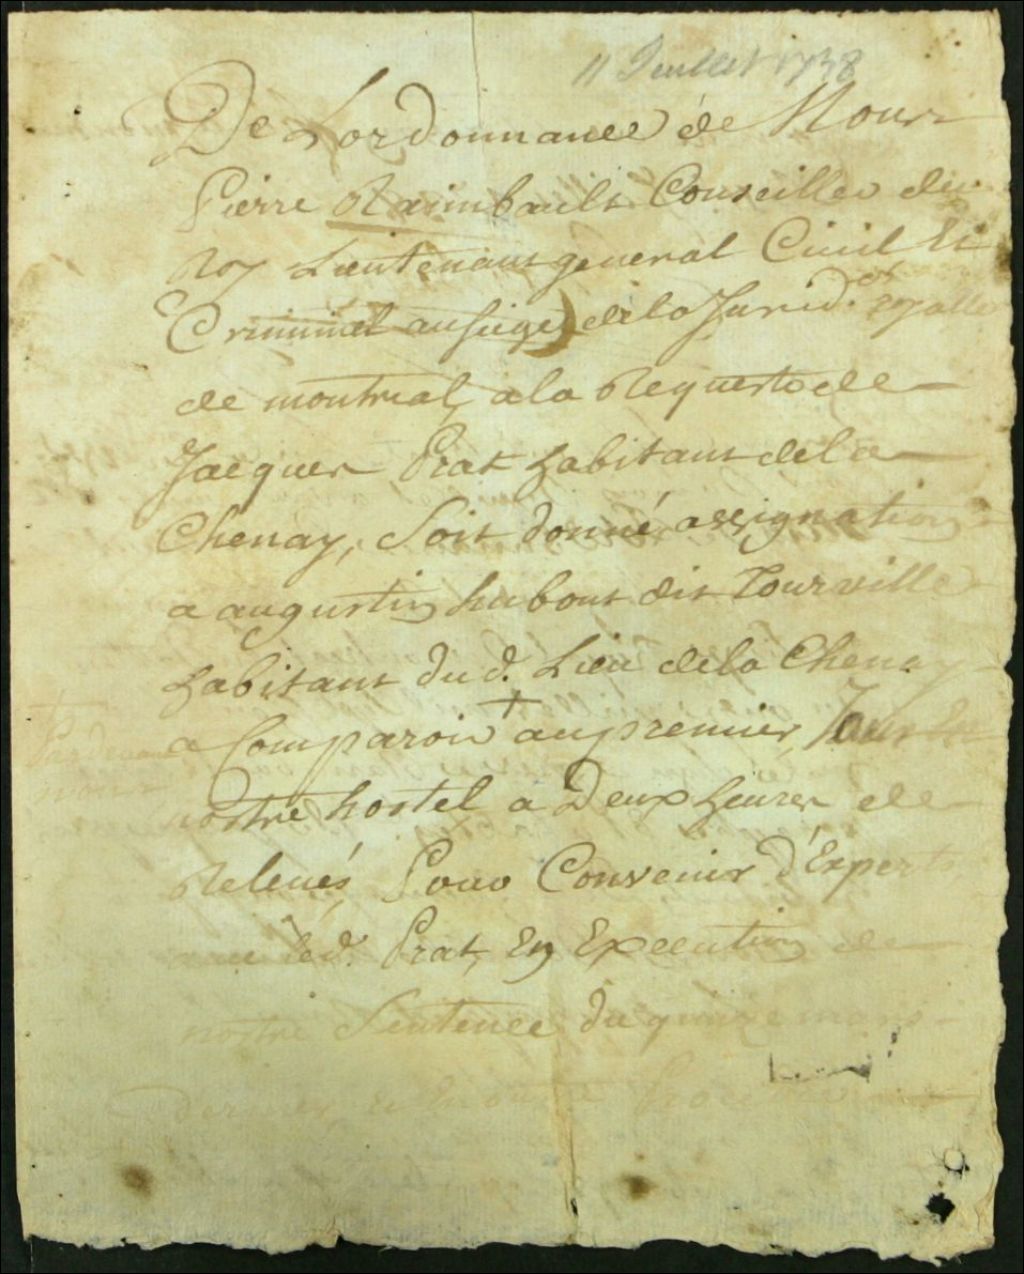 11 Juillet 1738
De Lordonnance de Nous
Pierre Raimbault Conseiller du
Roy Lieutenant general Civil Et
Criminel au siege de la Jurid.on royalle
de montreal, a la Requeste de
Jacques Prat habitant de la
Chenay, Soit donné assignation
a augustin hubout dit Tourville
habitant dud. Lieu de la Chenay
a Comparoir + au premier Jour En
+
Pardevant
nous
nostre hostel a Deux heures de
Relevés, Pour Convenir d'Experts
led. Prat, En Execution de
nostre Sentence du quinze mars
dernier, et En outre Proceder